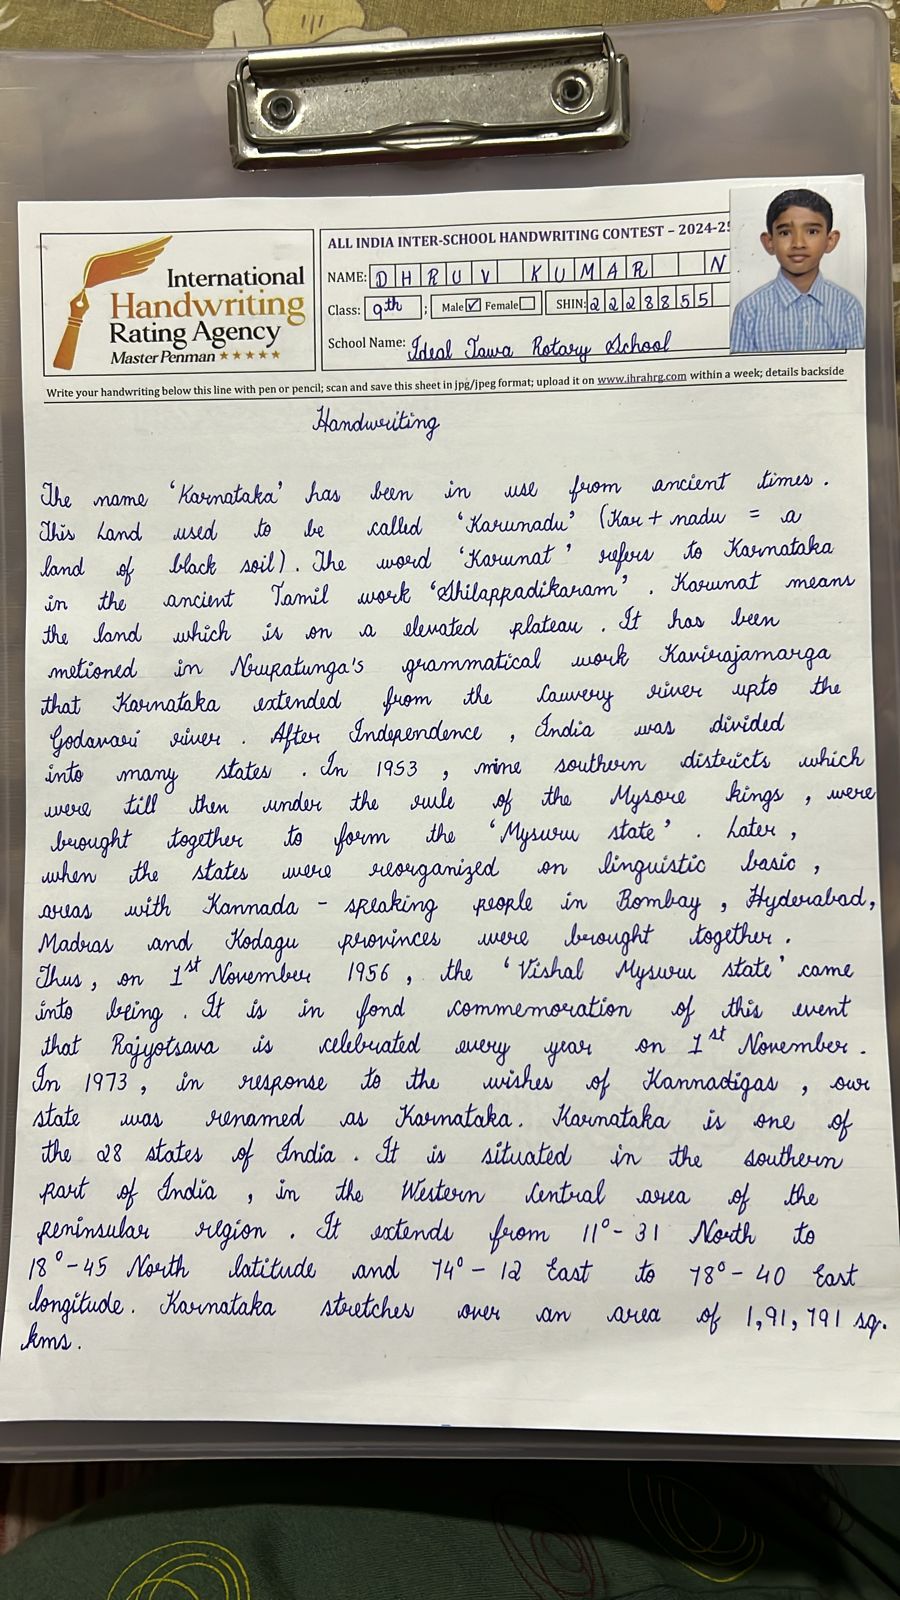 International
Handwriting
Rating Agency
Master Penman ★★★★★
ALL INDIA INTER-SCHOOL HANDWRITING CONTEST – 2024-25
NAME: DHRUV KUMAR N
Class: 9th ; Male ☑ Female ☐ SHIN: 2228855
School Name: Ideal Jawa Rotary School
Write your handwriting below this line with pen or pencil; scan and save this sheet in jpg/jpeg format; upload it on www.ihrahrg.com within a week; details backside
Handwriting
The name 'Karnataka' has been in use from ancient times.
This Land used to be called 'Karunadu' (Kar + nadu = a
land of black soil). The word 'Karunat' refers to Karnataka
in the ancient Tamil work 'Shilappadikaram'. Karunat means
the land which is on a elevated plateau. It has been
metioned in Nrupatunga's grammatical work Kavirajamarga
that Karnataka extended from the Cauvery river upto the
Godavari river. After Independence, India was divided
into many states. In 1953, nine southern districts which
were till then under the rule of the Mysore kings, were
brought together to form the 'Mysuru state'. Later,
when the states were reorganized on linguistic basic,
areas with Kannada - speaking people in Bombay, Hyderabad,
Madras and Kodagu provinces were brought together.
Thus, on 1st November 1956, the 'Vishal Mysuru state' came
into being. It is in fond commemoration of this event
that Rajyotsava is celebrated every year on 1st November.
In 1973, in response to the wishes of Kannadigas, our
state was renamed as Karnataka. Karnataka is one of
the 28 states of India. It is situated in the southern
part of India, in the Western Central area of the
peninsular region. It extends from 11°-31 North to
18°-45 North latitude and 74°-12 East to 78°-40 East
longitude. Karnataka stretches over an area of 1,91,791 sq.
kms.